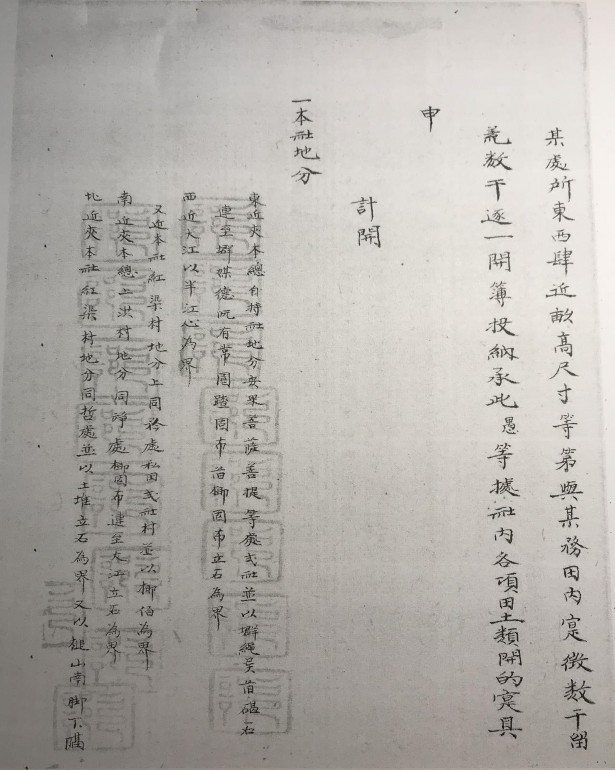 某處所東西肆近畝高尺寸等第與某務田內寔徵数干留
荒数干逐一開簿投納承此愚等據社內各項田土類開的寔具
申
計開
一本社地分
東近夾本總自持社地分安眾菩薩菩提等處弍社並以
連至 德阮有常固 固市首 固市立石為界
西近大江以半江心為界
又近本社紅渠村地分上同 處私田弍社村並以 為界
南近夾本總上洪村地分同 處 固市連至大江立石為界
北近夾本社紅渠村地分同哲處並以土堆立石為界又以 山南脚下